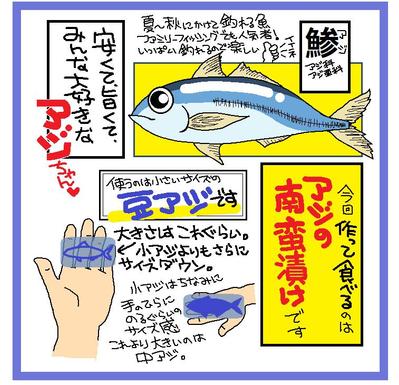 安くて旨くて、
みんな大好きな
アジちゃん♥
夏〜秋にかけて釣れる魚
ファミリーフィッシングでも人気者!
いっぱい釣れるので楽しい
アジ
鯵
アジ科
アジ亜科
使うのは小さいサイズの
豆アジです
大きさはこれぐらい。
小アジよりもさらに
サイズダウン。
小アジはちなみに
手のひらに
のるぐらいの
サイズ感
これより大きいのは
中アジ。
今回作って食べるのは
アジの
南蛮漬け
です